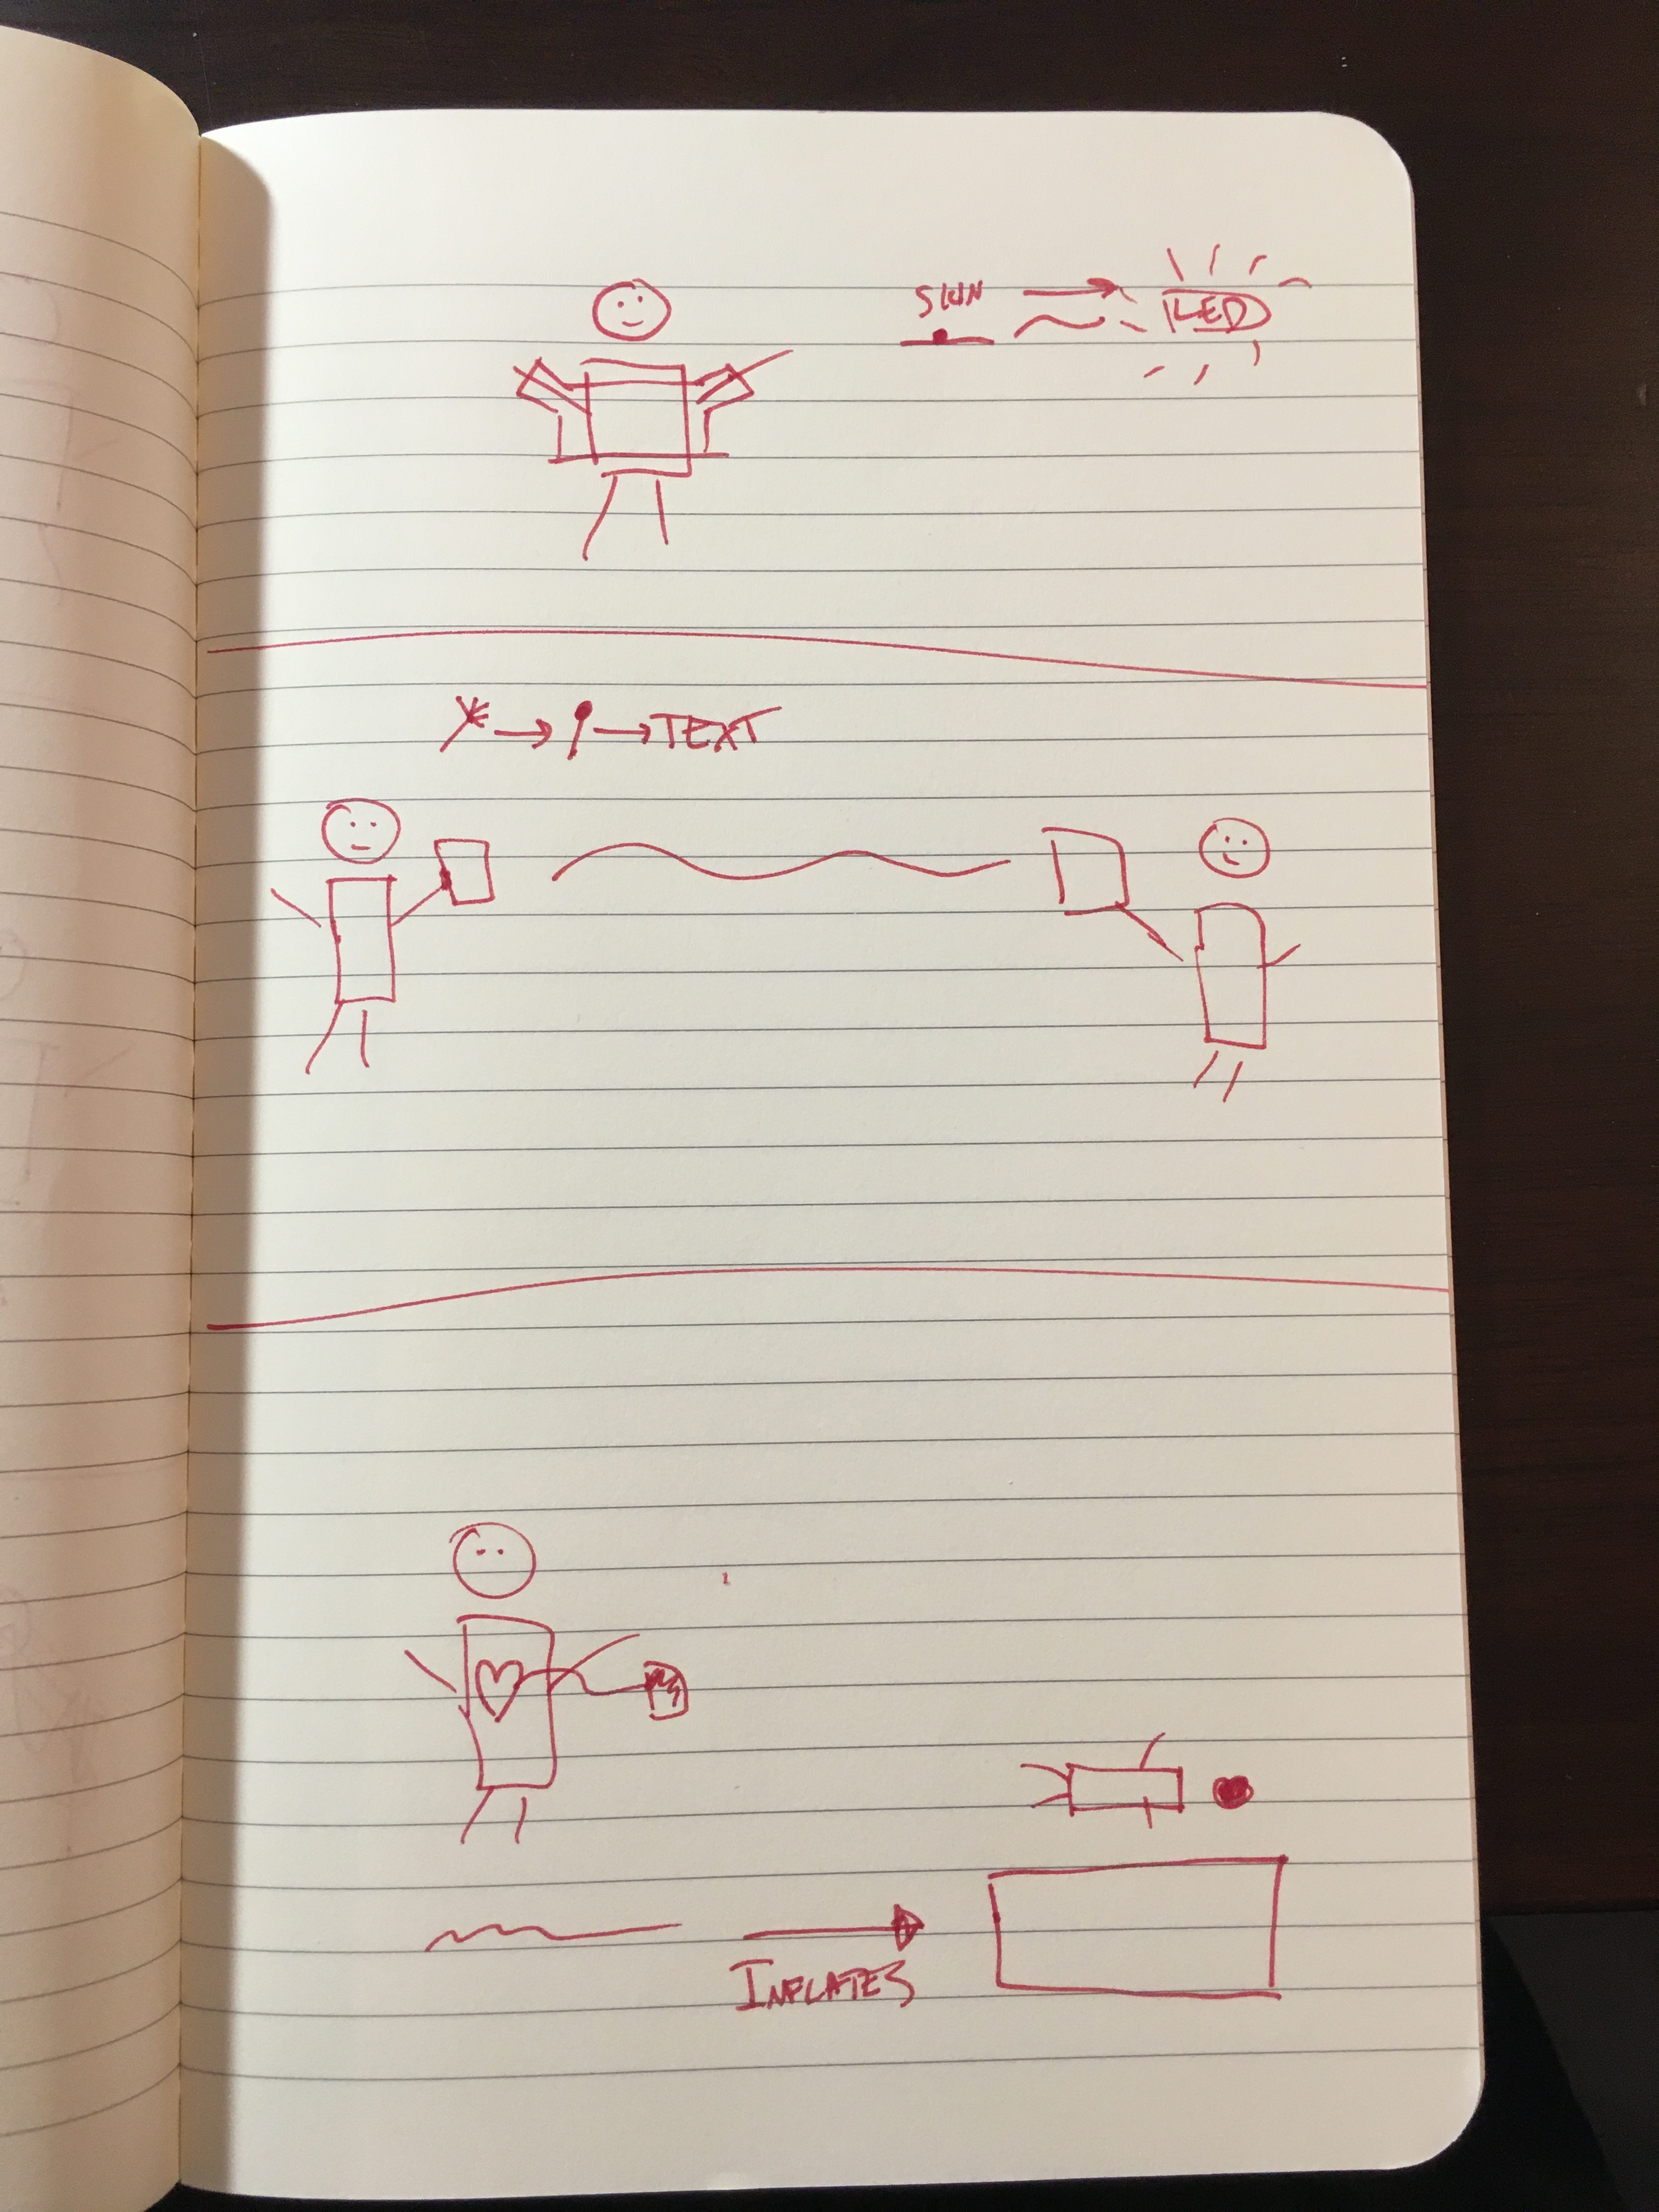 SKIN
LED
TEXT
INFLATES